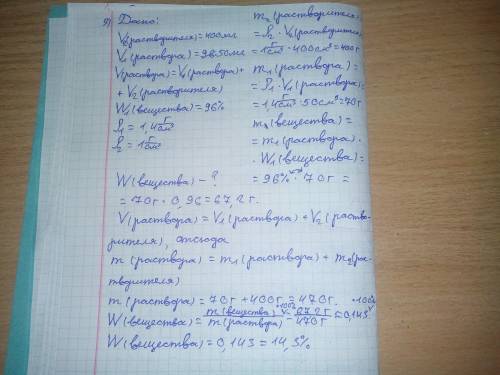 9) Дано:
V₂(растворителя)=400мл
V₁(раствора)=50мл
V(раствора)=V₁(раствора)+
+V₂(растворителя)
W₁(вещества)=96%
ρ₁=1,4г/см³
ρ₂=1г/см³
W(вещества)-?
m₂(растворителя)=
=ρ₂·V₂(растворителя)=
=1г/см³·400см³=400г
m₁(раствора)=
=ρ₁·V₁(раствора)=
=1,4г/см³·50см³=70г
m₁(вещества)=
=m₁(раствора)·
·W₁(вещества)=
=96%·70г=
=70г·0,96=67,2г.
V(раствора)=V₁(раствора)+V₂(раство-
рителя), отсюда
m(раствора)=m₁(раствора)+m₂(рас-
творителя)
m(раствора)=70г+400г=470г.
W(вещества)=m(вещества)/m(раствора)·100%=67,2г/470г·100%=0,143
W(вещества)=0,143=14,3%